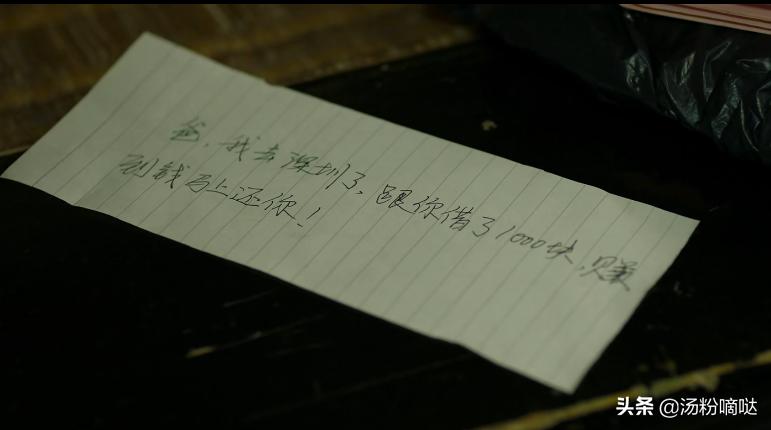 爸，我去深圳了，跟你借了1000块，赚
到钱马上还你！
头条 @汤粉嘀哒